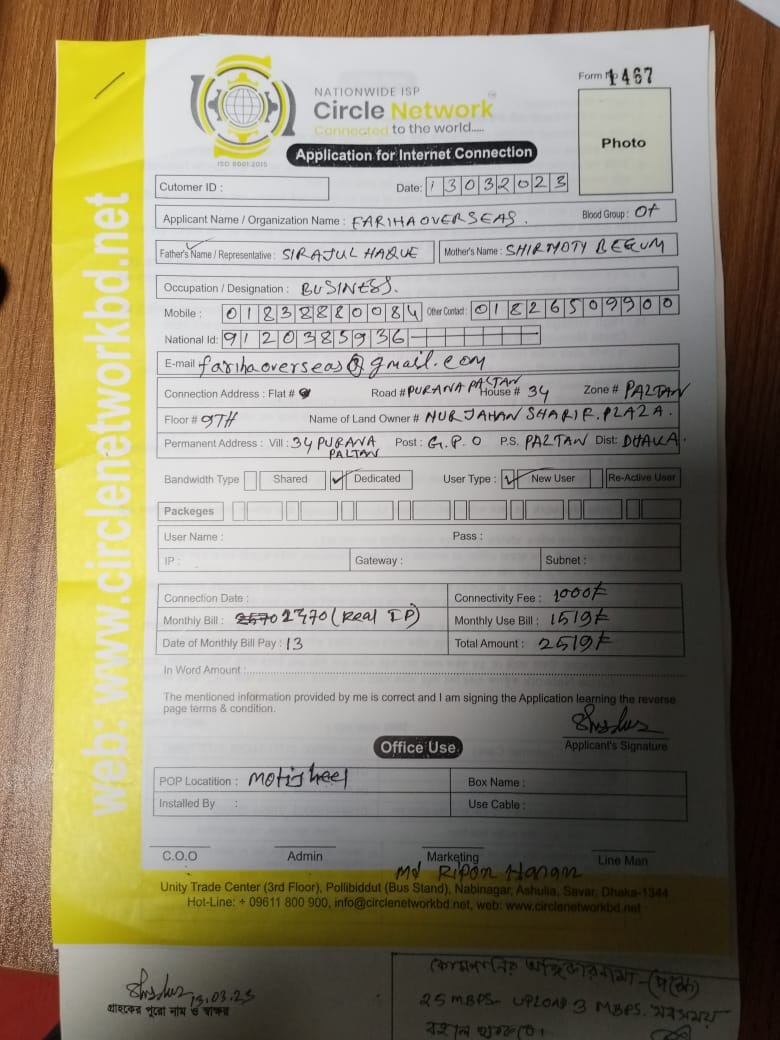 web: www.circlenetworkbd.net
Form No 1467
NATIONWIDE ISP
Circle Network
Connected to the world.....
ISO 9001:2015
Photo
Application for Internet Connection
Cutomer ID :
Date: 13032023
Applicant Name / Organization Name : FARIHA OVERSEAS.
Blood Group : O+
Father's Name / Representative : SIRAJUL HAQUE
Mother's Name : SHIRMOTY BEGUM
Occupation / Designation : BUSINESS.
Mobile : 01838880084 Other Contact : 01826509900
National Id: 9120385936
E-mail farihaoverseas@gmail.com
Connection Address : Flat # Road # PURANA PALTAN House # 34 Zone # PALTAN
Floor # 9TH Name of Land Owner # NURJAHAN SHARIF. PLAZA.
Permanent Address : Vill : 34 PURANA PALTAN Post : G.P.O P.S. PALTAN Dist: DHAKA.
Bandwidth Type Shared Dedicated User Type : New User Re-Active User
Packeges
User Name : Pass :
IP : Gateway : Subnet :
Connection Date : Connectivity Fee : 1000/-
Monthly Bill : 2370 (Real IP) Monthly Use Bill : 1519/-
Date of Monthly Bill Pay : 13 Total Amount : 2519/-
In Word Amount :
The mentioned information provided by me is correct and I am signing the Application learning the reverse
page terms & condition.
Applicant's Signature
Office Use
POP Locatition : Motijheel Box Name :
Installed By : Use Cable :
C.O.O Admin Marketing Line Man
Md Ripon Hasan
Unity Trade Center (3rd Floor), Pollibiddut (Bus Stand), Nabinagar, Ashulia, Savar, Dhaka-1344
Hot-Line: + 09611 800 900, info@circlenetworkbd.net, web: www.circlenetworkbd.net
13.03.23
গ্রাহকের পুরো নাম ও স্বাক্ষর
কোম্পানির অঙ্গিকারনামা-
25 MBPS- UPLOAD 3 MBPS. সবসময়
বহাল থাকবে।